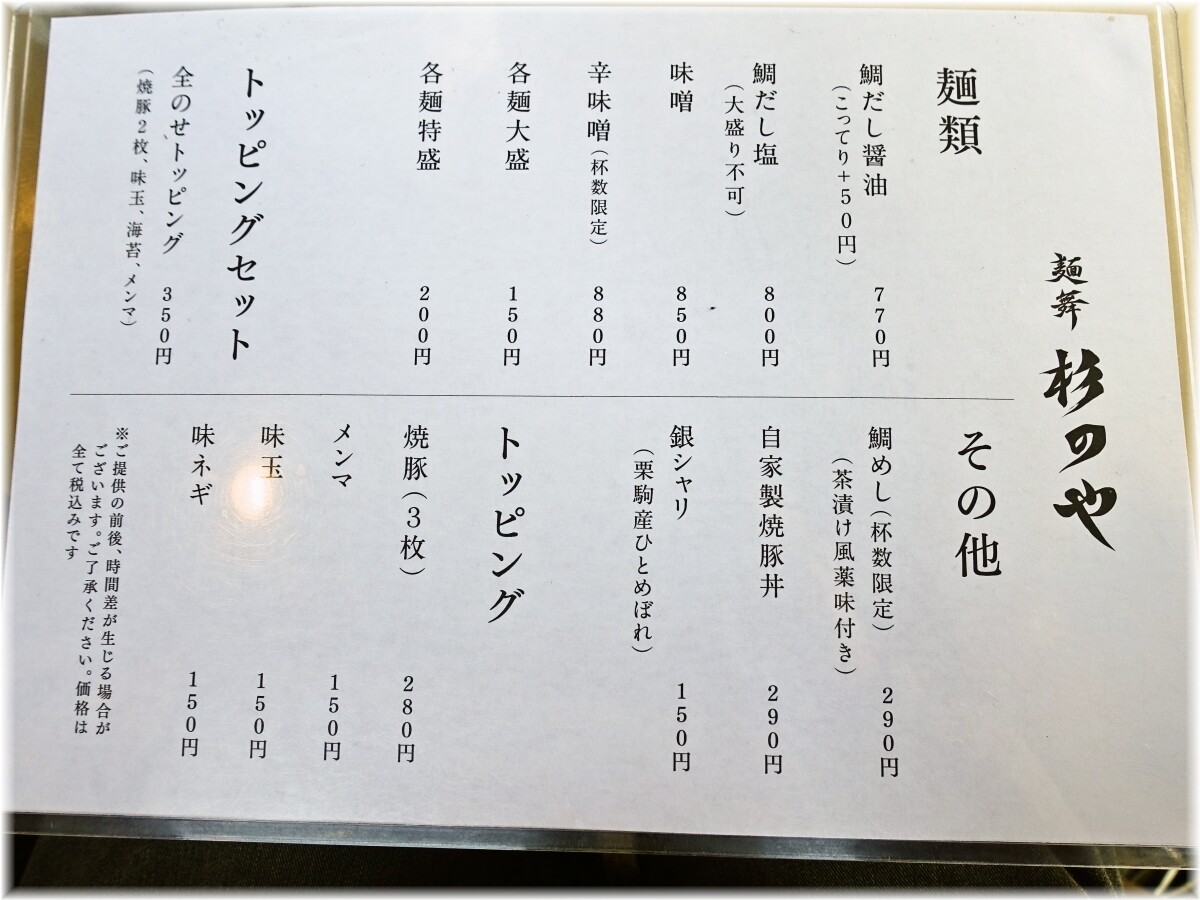 麺舞 杉のや
麺類
鯛だし醤油 770円
(こってり+50円)
鯛だし塩 800円
(大盛り不可)
味噌 850円
辛味噌(杯数限定) 880円
各麺大盛 150円
各麺特盛 200円
トッピングセット
全のせトッピング 350円
(焼豚2枚、味玉、海苔、メンマ)
その他
鯛めし(杯数限定) 290円
(茶漬け風薬味付き)
自家製焼豚丼 290円
銀シャリ 150円
(栗駒産ひとめぼれ)
トッピング
焼豚(3枚) 280円
メンマ 150円
味玉 150円
味ネギ 150円
※ご提供の前後、時間差が生じる場合が
ございます。ご了承ください。価格は
全て税込みです